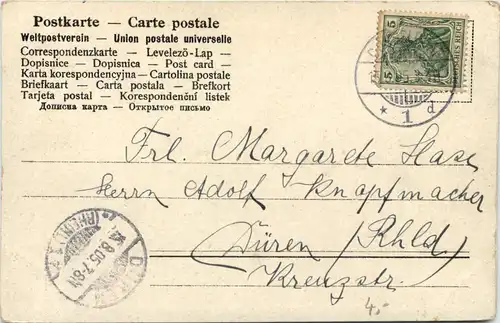 Postkarte — Carte postale
Weltpostverein — Union postale universelle
Correspondenzkarte — Levelező-Lap —
Dopisnice — Dopisnica — Post card —
Karta korespondencyjna — Cartolina postale
Briefkaart — Carta postala — Brefkort
Tarjeta postal — Korespondenční listek
Дописна карта — Открытое письмо
5 5
5
* 1 d
Frl. Margarete Hase
Herrn Adolf Knapfmacher
Düren (Rhld)
Kreuzstr.
15.8.05.7-8
4.-